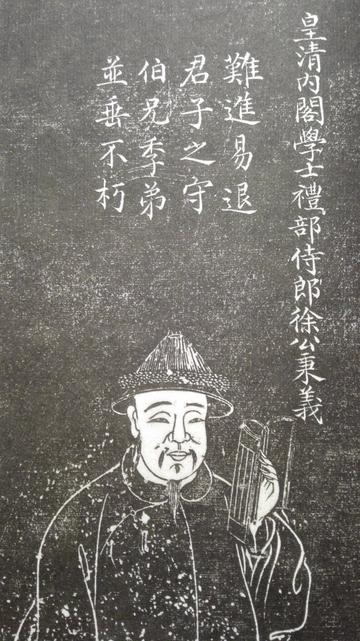 皇清內閣學士禮部侍郎徐公秉義
難進易退
君子之守
伯兄季弟
並垂不朽